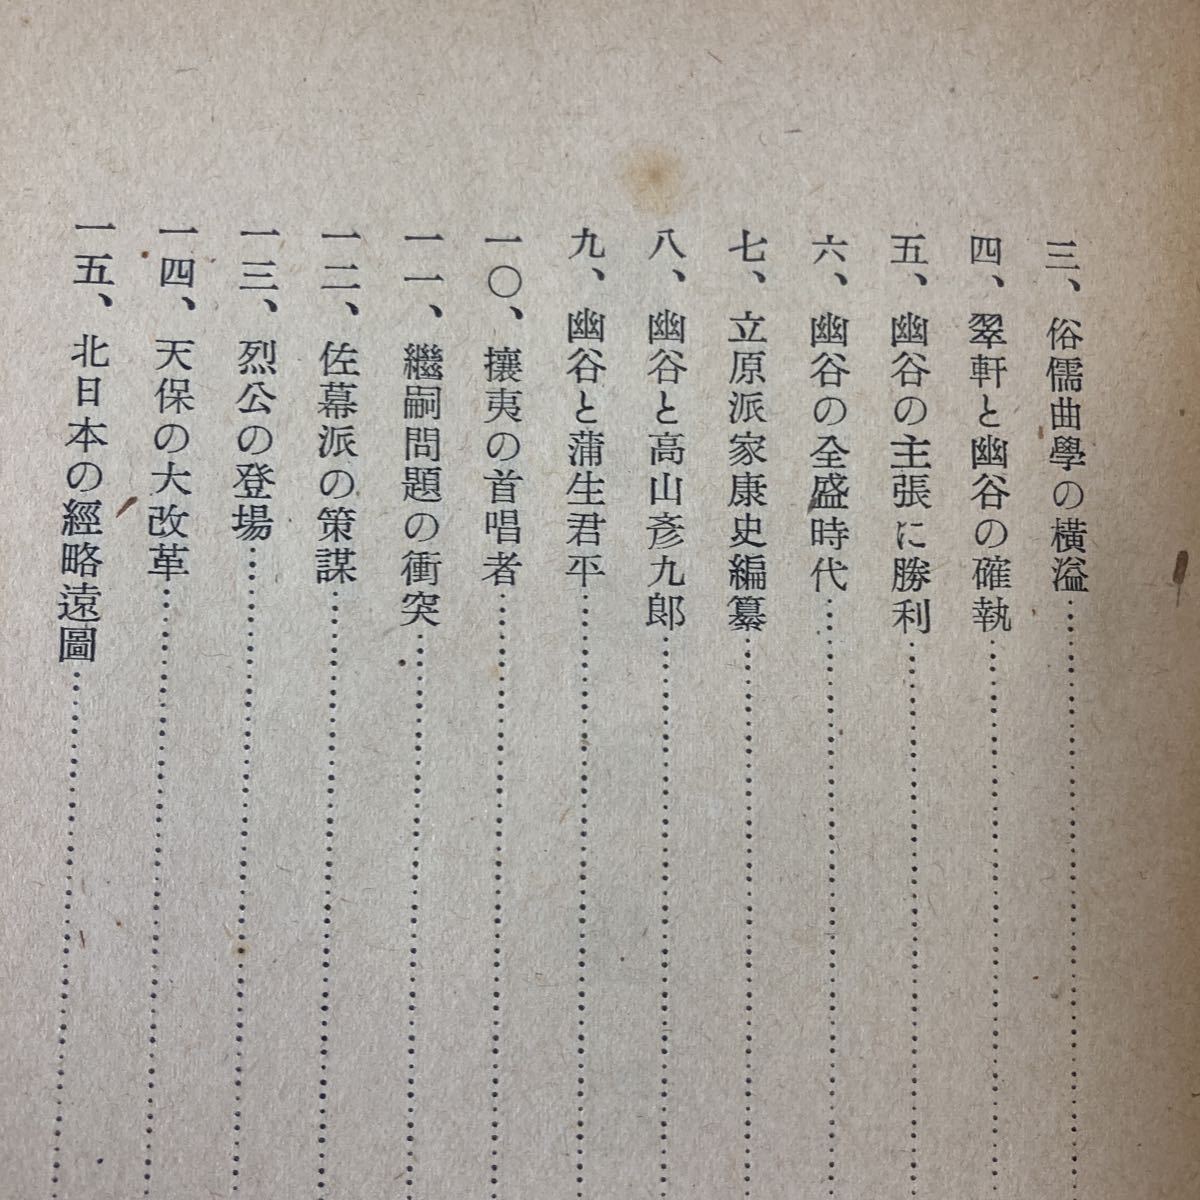 三、俗儒曲學の横溢…………
四、翠軒と幽谷の確執…………
五、幽谷の主張に勝利…………
六、幽谷の全盛時代…………
七、立原派家康史編纂…………
八、幽谷と高山彥九郎…………
九、幽谷と蒲生君平…………
一〇、攘夷の首唱者…………
一一、繼嗣問題の衝突…………
一二、佐幕派の策謀…………
一三、烈公の登場…………
一四、天保の大改革…………
一五、北日本の經略遠圖…………